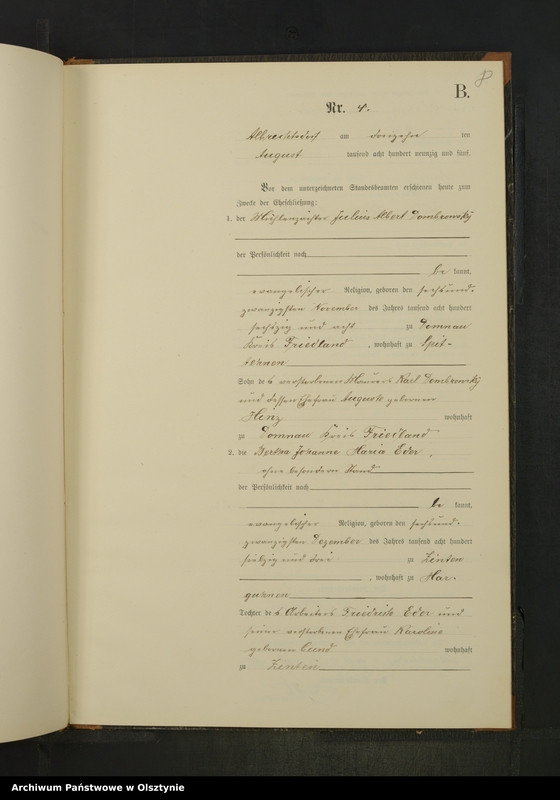 8
B.
Nr. 4.
Albrechtsdorf am dreizehn ten
August tausend acht hundert neunzig und fünf.
Vor dem unterzeichneten Standesbeamten erschienen heute zum
Zwecke der Eheschließung:
1. der Mühlenmeister Julius Albert Dombrowsky
der Persönlichkeit nach
be kannt,
evangelischer Religion, geboren den sechsund-
zwanzigsten November des Jahres tausend acht hundert
sechszig und acht zu Domnau
Kreis Friedland, wohnhaft zu Spit-
tehnen
Sohn des verstorbenen Maurers Karl Dombrowsky
und dessen Ehefrau Auguste geborenen
Hinz wohnhaft
zu Domnau Kreis Friedland
2. die Bertha Johanne Maria Eder,
ohne besonderen Stand
der Persönlichkeit nach
be kannt,
evangelischer Religion, geboren den sechsund-
zwanzigsten Dezember des Jahres tausend acht hundert
siebzig und drei zu Zinten
, wohnhaft zu Har-
gehnen
Tochter des Arbeiters Friedrich Eder und
seiner verstorbenen Ehefrau Karoline
geborenen wohnhaft
zu Zinten
Archiwum Państwowe w Olsztynie